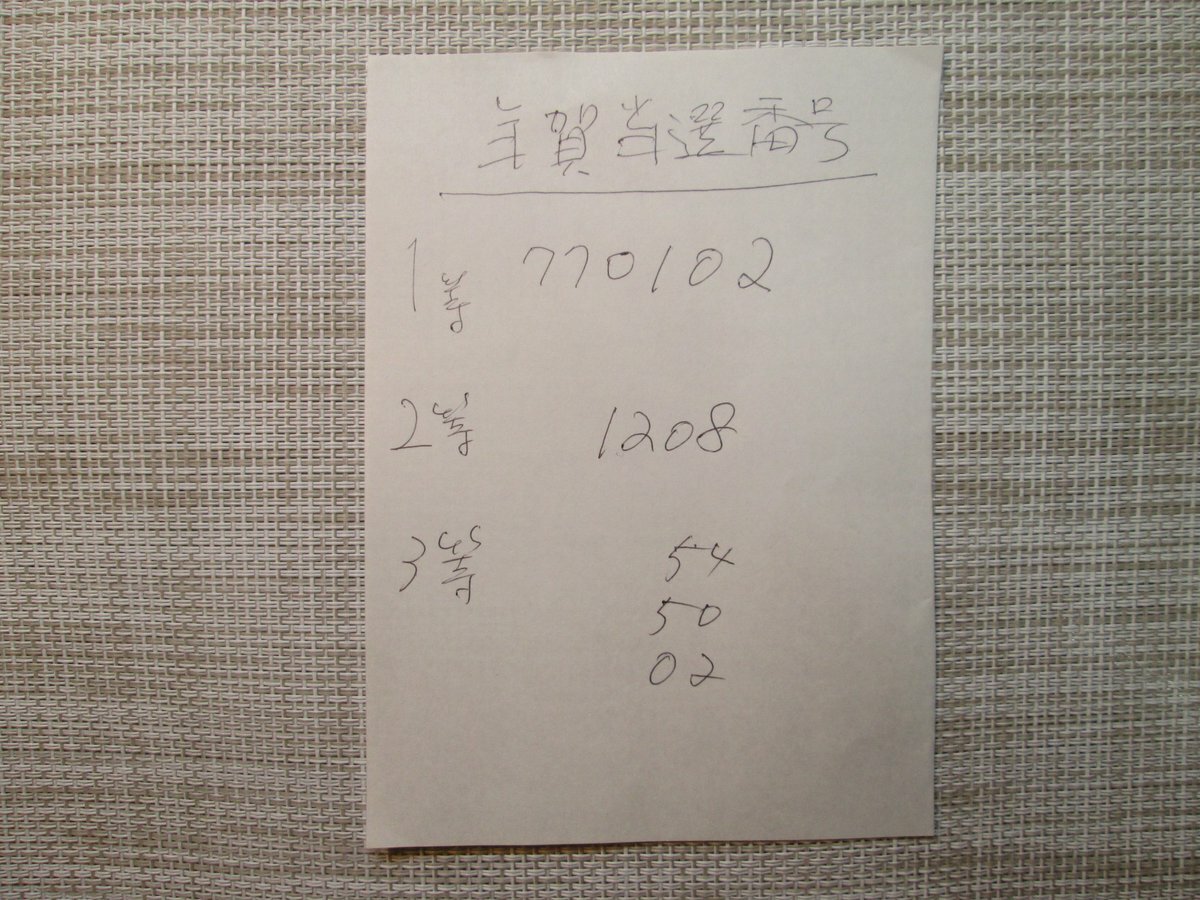 年賀当選番号
1等 770102
2等 1208
3等 54
50
02